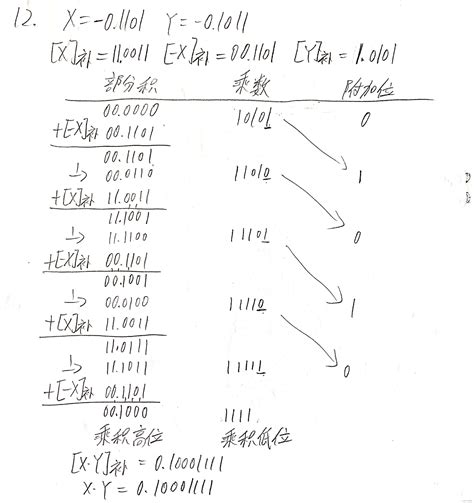 12. X=-0.1101 Y=-0.1011
[X]补=11.0011 [-X]补=00.1101 [Y]补=1.0101
部分积 乘数 附加位
00.0000 10101 0
+[-X]补 00.1101
00.1101
→ 00.0110 11010 1
+[X]补 11.0011
11.1001
→ 11.1100 11101 0
+[-X]补 00.1101
00.1001
→ 00.0100 11110 1
+[X]补 11.0011
11.0111
→ 11.1011 11111 0
+[-X]补 00.1101
00.1000 1111
乘积高位 乘积低位
[X·Y]补 = 0.10001111
X·Y = 0.10001111